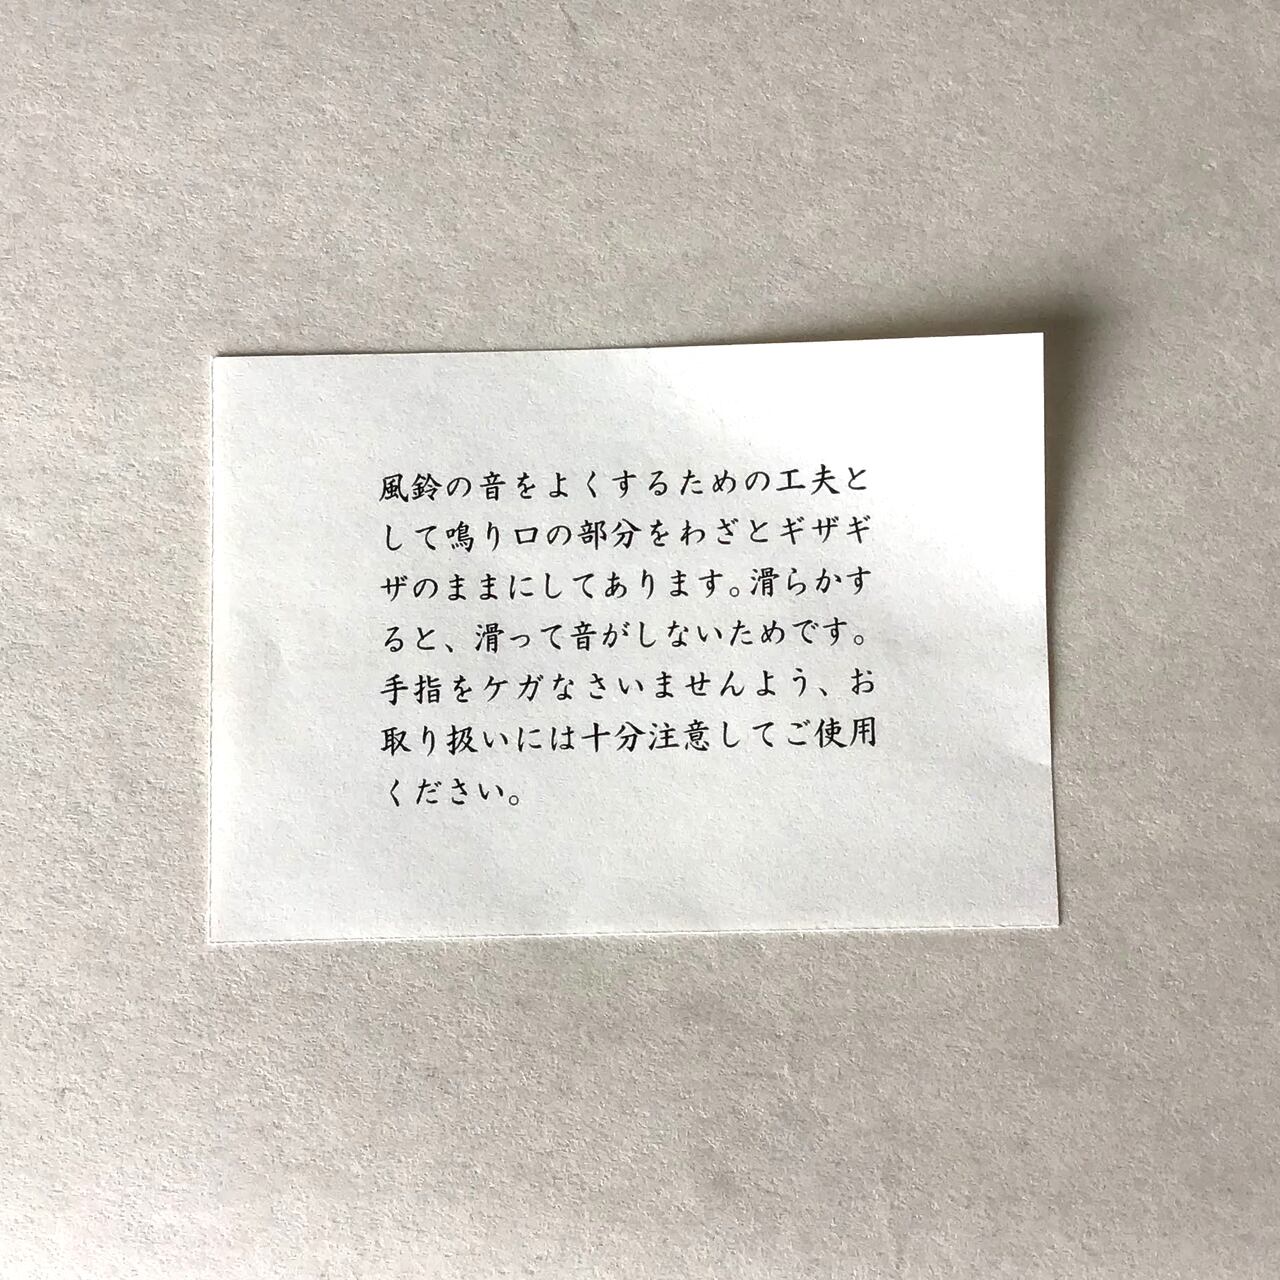 風鈴の音をよくするための工夫と
して鳴り口の部分をわざとギザギ
ザのままにしてあります。滑らかす
ると、滑って音がしないためです。
手指をケガなさいませんよう、お
取り扱いには十分注意してご使用
ください。